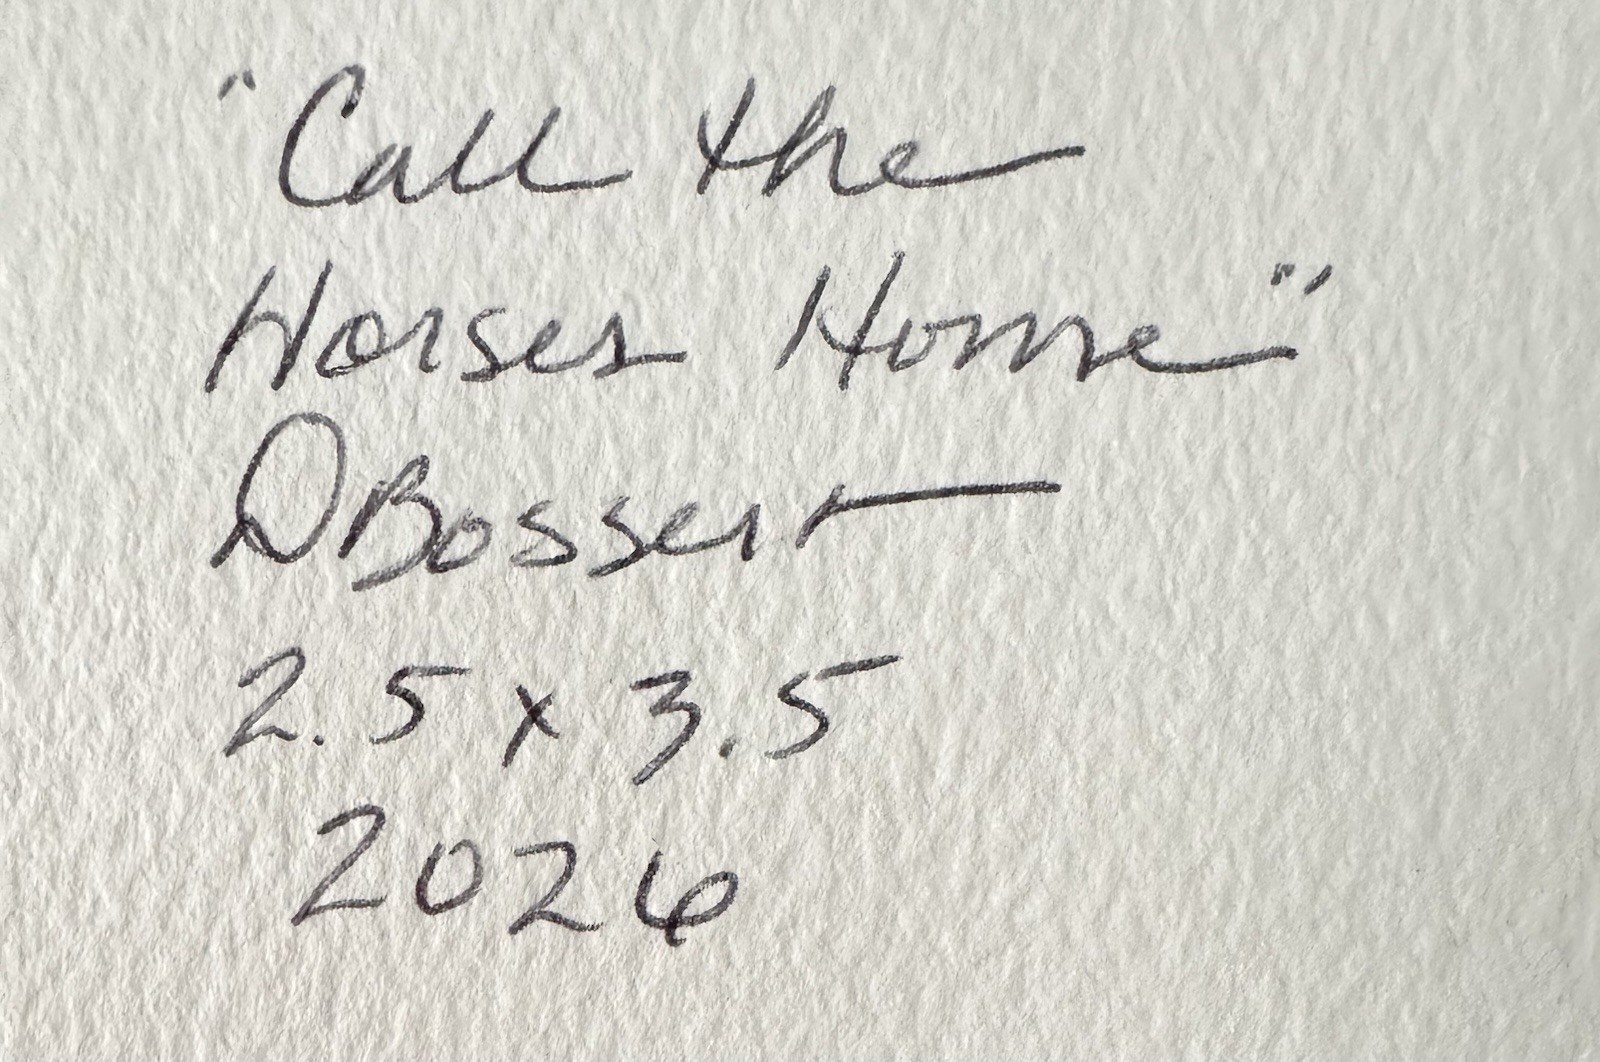 "Call the
Horses Home"
DBossert
2.5 x 3.5
2026